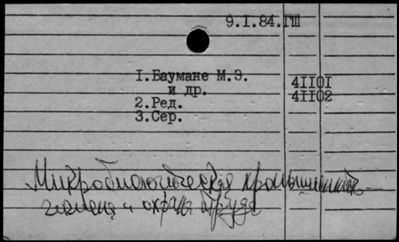 9.I.84.ГШ
I.Баумане М.Э.
и др.
4II0I
4II02
2.Ред.
3.Сер.
Микробиологическая промышленность
гигиена и охрана труда